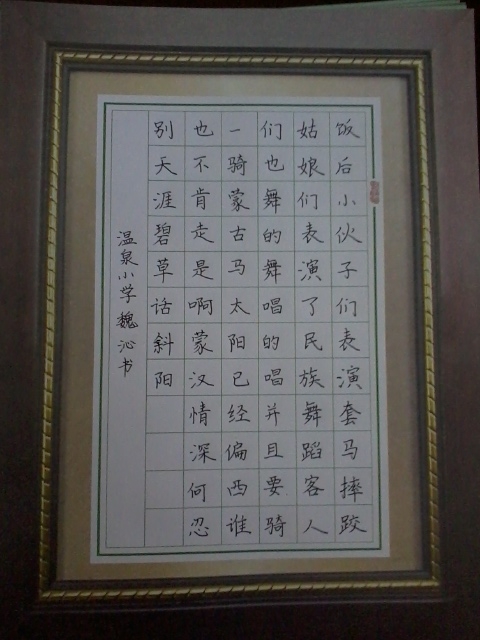 饭后小伙子们表演套马摔跤
姑娘们表演了民族舞蹈客人
们也舞的舞唱的唱并且要骑
一骑蒙古马太阳已经偏西谁
也不肯走是啊蒙汉情深何忍
别天涯碧草话斜阳
温泉小学魏沁书